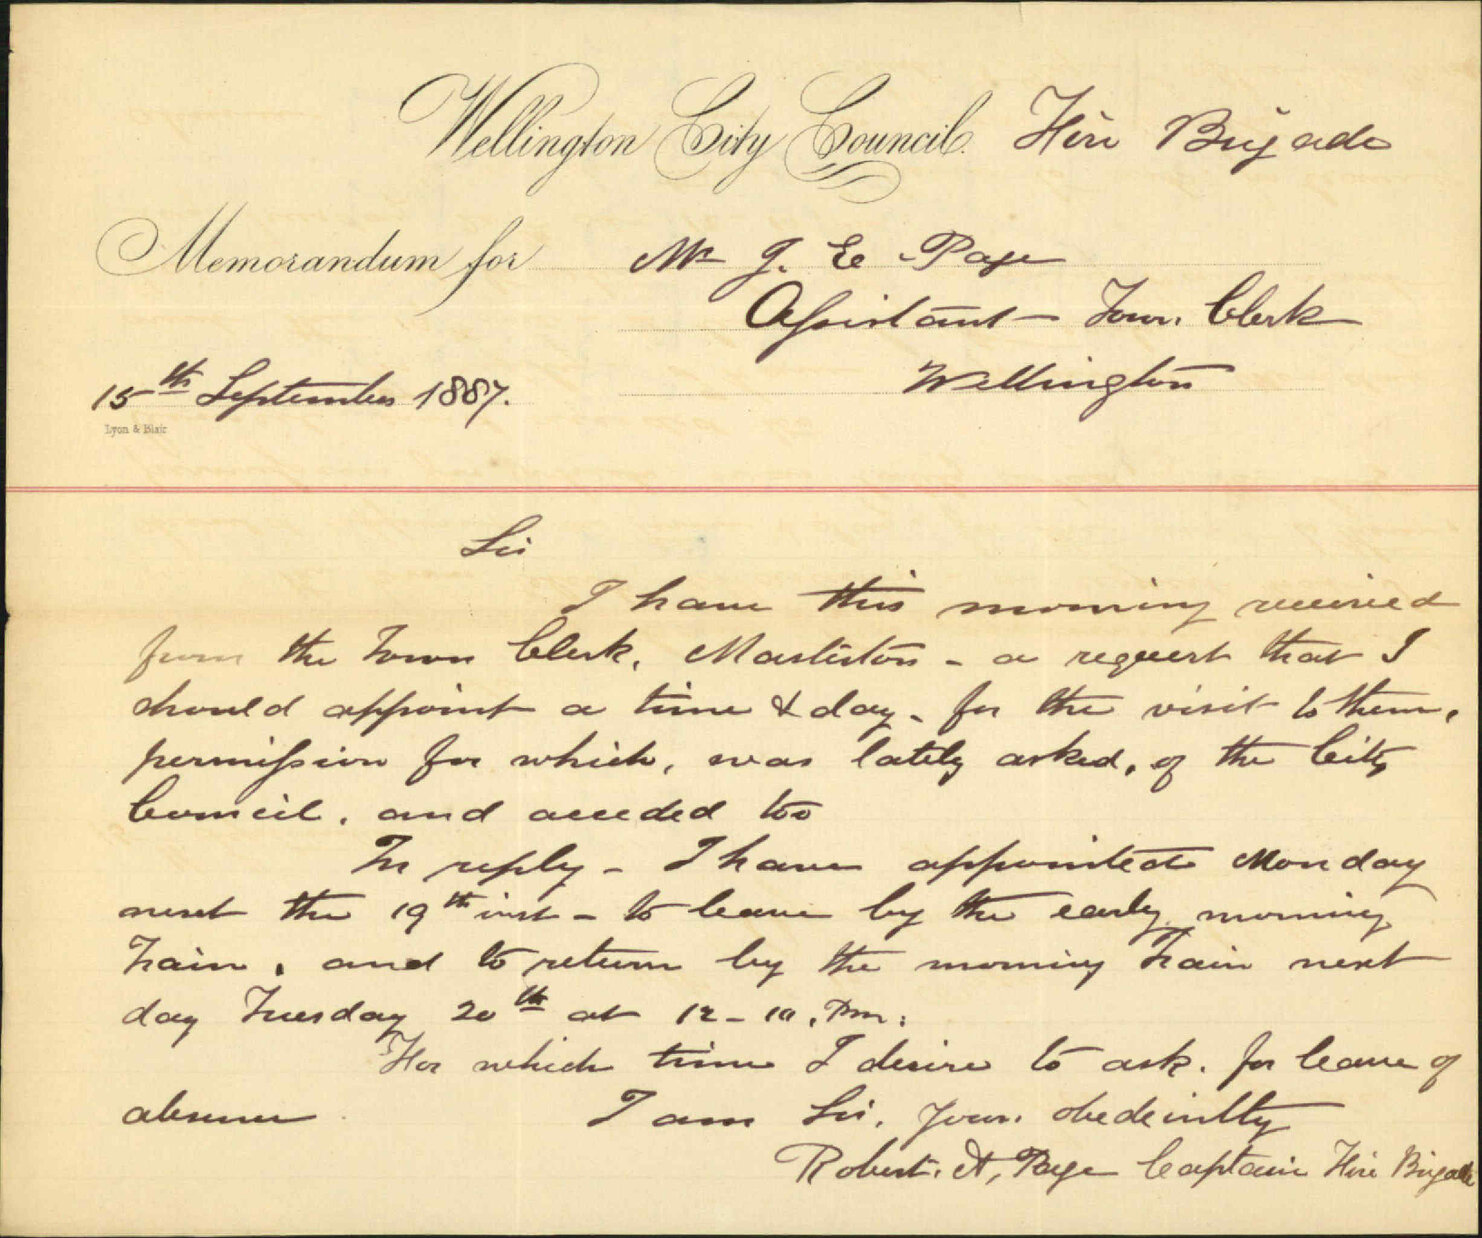 Wellington City Council. Fire Brigade
Memorandum for Mr J. E. Page
Assistant Town Clerk
Wellington
15th September 1887.
Lyon & Blair
Sir
I have this morning received
from the Town Clerk, Masterton - a request that I
should appoint a time & day - for the visit to them,
permission for which, was lately asked, of the City
Council, and acceded too
In reply - I have appointed Monday
next the 19th inst - to leave by the early morning
Train, and to return by the morning Train next
day Tuesday 20th at 12-10. Pm.
For which time I desire to ask. for leave of
absence I am Sir, Your. obedeintly
Robert. A, Page Captain Fire Brigade